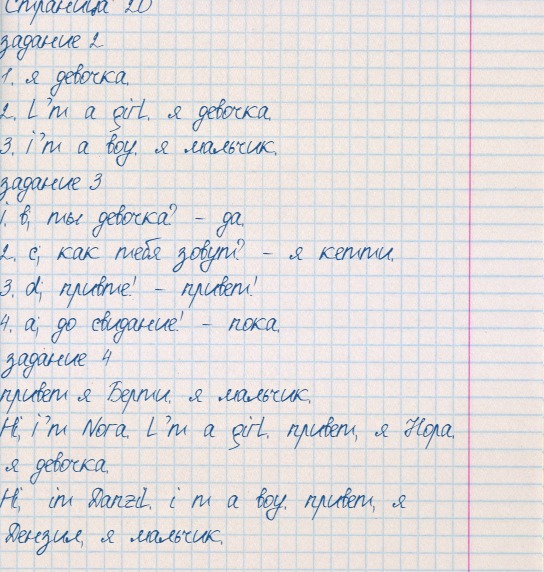 Страница 20
задание 2
1. я девочка.
2. I'm a girl. я девочка.
3. i'm a boy. я мальчик.
задание 3
1. b; ты девочка? - да.
2. c; как тебя зовут? - я кетти.
3. d; привте! - привет!
4. a; до свидание! - пока.
задание 4
привет я Берти. я мальчик.
Hi, i'm Nora. I'm a girl. привет, я Нора.
я девочка.
Hi, im Danzil. i m a boy. привет, я
Дензил, я мальчик.